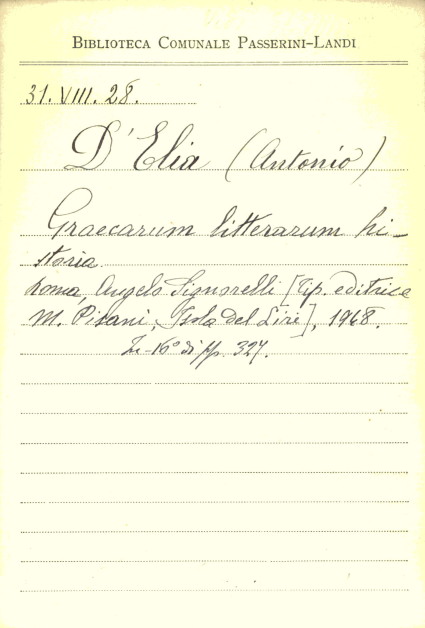 BIBLIOTECA COMUNALE PASSERINI-LANDI
31. VIII. 28.
D'Elia (Antonio)
Graecarum litterarum hi-
storia.
Roma, Angelo Signorelli [Tip. editrice
M. Pisani, Isola del Liri], 1968.
In-16° di pp. 327.